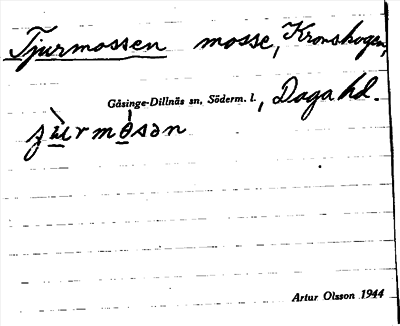 Tjurmossen mosse, Kronskogen,
Gåsinge-Dillnäs sn, Söderm. l., Daga hd.
Artur Olsson 1944